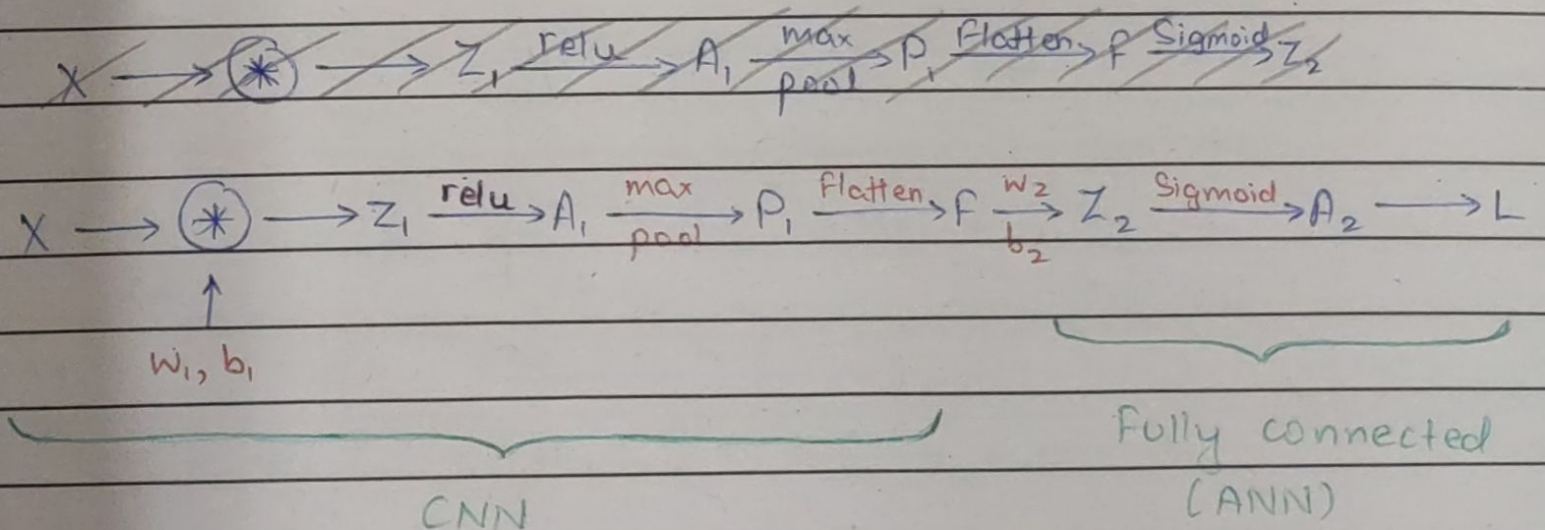 X → * → Z₁ relu→ A₁ max pool→ P₁ Flatten→ F Sigmoid→ Z₂
X → * → Z₁ relu→ A₁ max pool→ P₁ Flatten→ F W₂ b₂→ Z₂ Sigmoid→ A₂ → L
↑
W₁, b₁
Fully connected
(ANN)
CNN